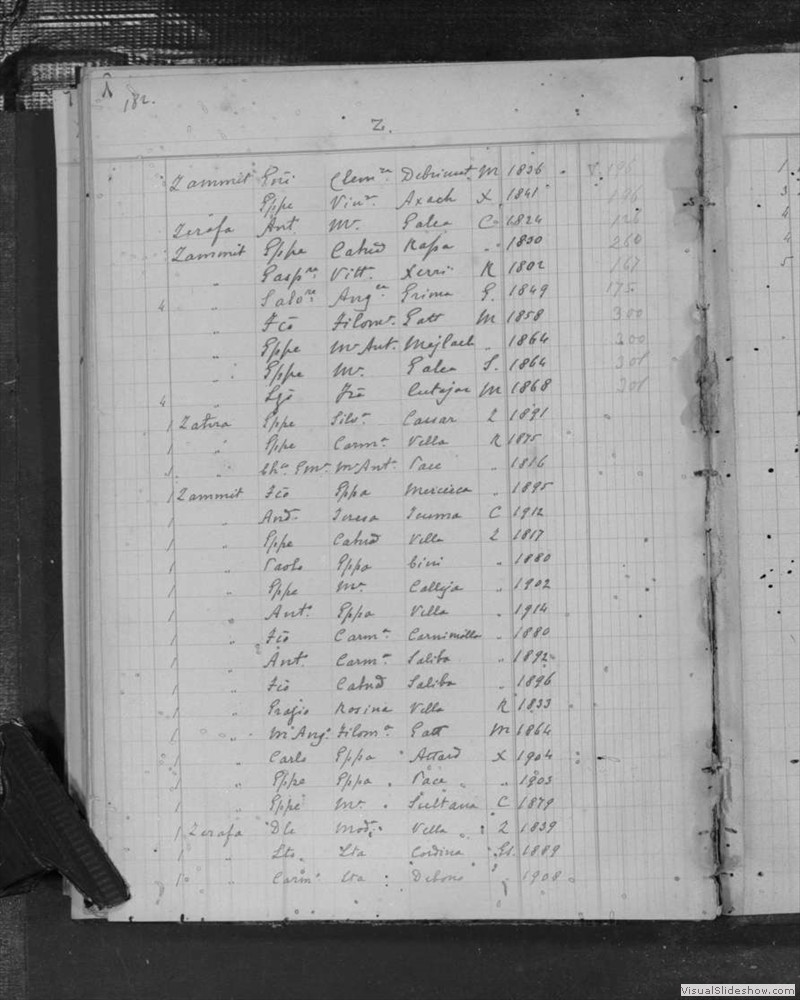 182.
Z.
Zammit Gni Clem.ra Debrincat M 1836 196
" Eppe Vin.a Axach X 1841 196
Zerafa Ant. M.a Galea C 1824 126
Zammit Eppe Catnd Rapa " 1830 260
" Gasp.re Vitt. Xerri R 1802 167
4 " Salv.re Ang.ca Grima G. 1849 175
" Fco Filom.a Gatt M 1858 300
" Eppe M.a Ant. Mejlach " 1864 300
" Eppe M.a Galea S. 1864 301
4 " Lgo Fca Cutajar M 1868 301
1 Zahra Eppe Silv.a Cassar Z 1891
1 " Eppe Carm.a Vella R 1875
1 " M.a Ant. Pace " 1816
1 Zammit Fco Eppa Mercieca " 1895
1 " And. Teresa Teuma C 1912
1 " Eppe Catnd Vella Z 1817
1 " Paolo Eppa Cini " 1880
1 " Eppe M.a Calleja " 1902
1 " Ant.o Eppa Vella " 1914
1 " Fco Carm.a Carnimolla " 1880
1 " Ant. Carm.a Saliba " 1892
1 " Fco Catnd Saliba " 1896
1 " Grazio Rosina Vella R 1833
1 " M.Ang.o Filom.a Gatt M 1864
1 " Carlo Eppa Attard X 1904
1 " Eppe Eppa Pace " 1903
1 " Eppe M.a Sultana C 1879
1 Zerafa Dle Mod.a Vella Z 1839
1 " Lto Lta Cordina Gh. 1889
1 " Carm.o Lta Debono " 1908
1
3
4
4
5
VisualSlideshow.com